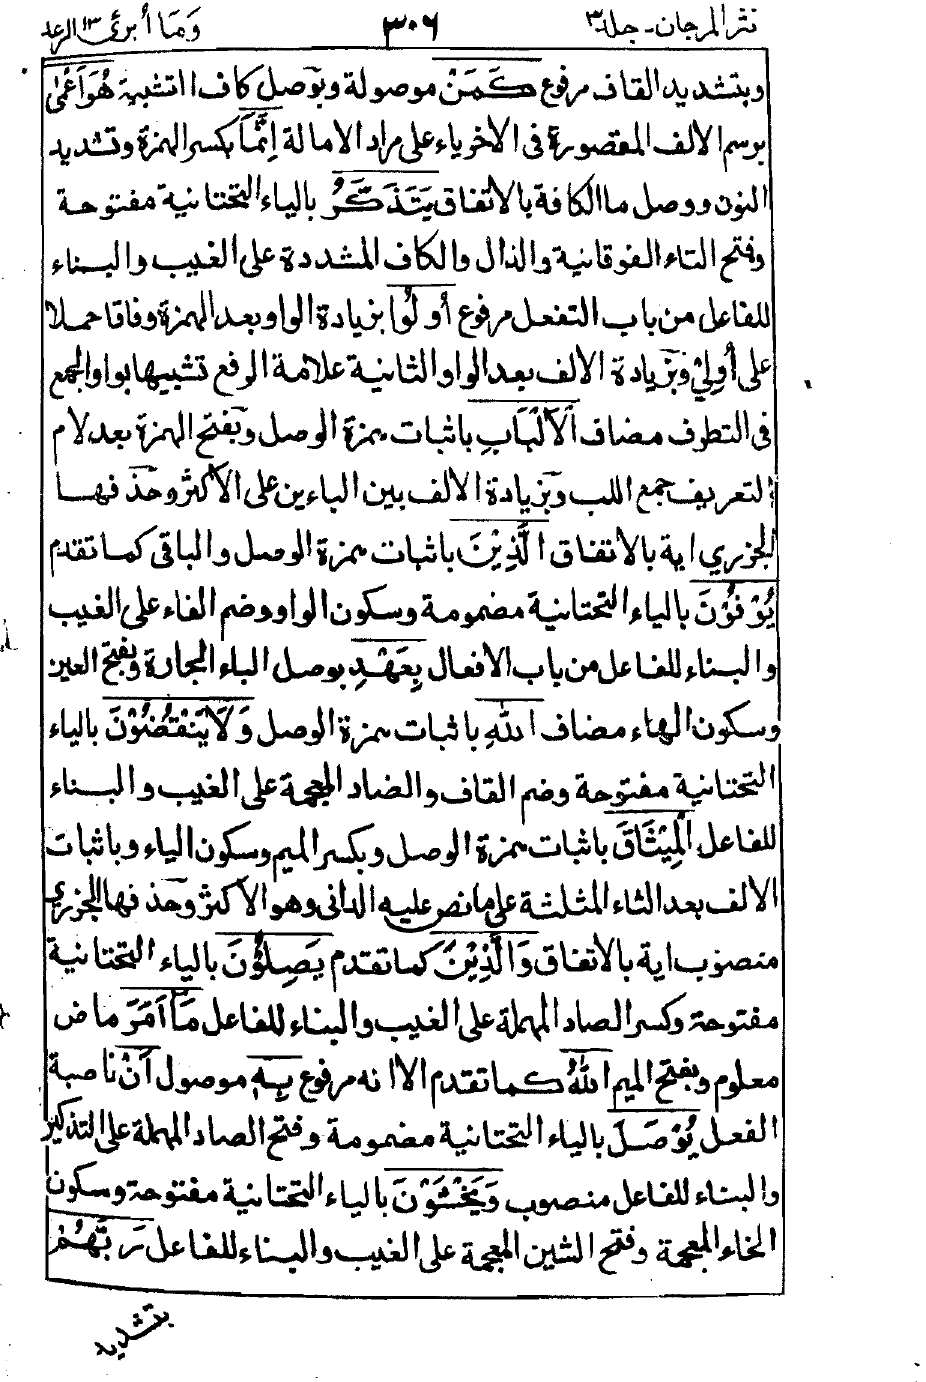 نثر المرجان - جلد ٣ ٣٠٦ وَمَا أُبَرِّئُ ١٣ الرعد
وبتشديد القاف مرفوع كَمَنْ موصولة وبوصل كاف التشبيه هُوَ أَعْمٰى
برسم الالف المقصورة فى الاخر ياء على مراد الامالة إِنَّمَا بكسر الهمزة وتشديد
النون ووصل ما الكافة بالاتفاق يَتَذَكَّرُ بالياء التحتانية مفتوحة
وفتح التاء الفوقانية والذال والكاف المشددة على الغيب والبناء
للفاعل من باب التفعل مرفوع أُولُوا بزيادة الواو بعد الهمزة وفاقا حملا
على أُولِيْ وبزيادة الالف بعد الواو الثانية علامة الرفع تشبيها بواو الجمع
فى التطرف مضاف الْأَلْبَابِ باثبات همزة الوصل وبفتح الهمزة بعد لام
التعريف جمع اللب وبزيادة الالف بين الباءين على الاكثر وحذفها
الجزري اية بالاتفاق الَّذِيْنَ باثبات همزة الوصل والباقى كما تقدم
يُوْفُوْنَ بالياء التحتانية مضمومة وسكون الواو وضم الفاء على الغيب
والبناء للفاعل من باب الافعال بِعَهْدِ بوصل الباء الجارة وبفتح العين
وسكون الهاء مضاف اللهِ باثبات همزة الوصل وَلَا يَنْقُضُوْنَ بالياء
التحتانية مفتوحة وضم القاف والضاد المعجمة على الغيب والبناء
للفاعل الْمِيْثَاقَ باثبات همزة الوصل وبكسر الميم وسكون الياء وباثبات
الالف بعد الثاء المثلثة على ما نص عليه الدانى وهو الاكثر وحذفها الجزري
منصوب اية بالاتفاق وَالَّذِيْنَ كما تقدم يَصِلُوْنَ بالياء التحتانية
مفتوحة وكسر الصاد المهملة على الغيب والبناء للفاعل مَآ أَمَرَ ماض
معلوم وبفتح الميم اللهُ كما تقدم الا انه مرفوع بِهٖ موصول أَنْ ناصبة
الفعل يُوْصَلَ بالياء التحتانية مضمومة وفتح الصاد المهملة على التذكير
والبناء للفاعل منصوب وَيَخْشَوْنَ بالياء التحتانية مفتوحة وسكون
الخاء المعجمة وفتح الشين المعجمة على الغيب والبناء للفاعل رَبَّهُمْ
بتشديد